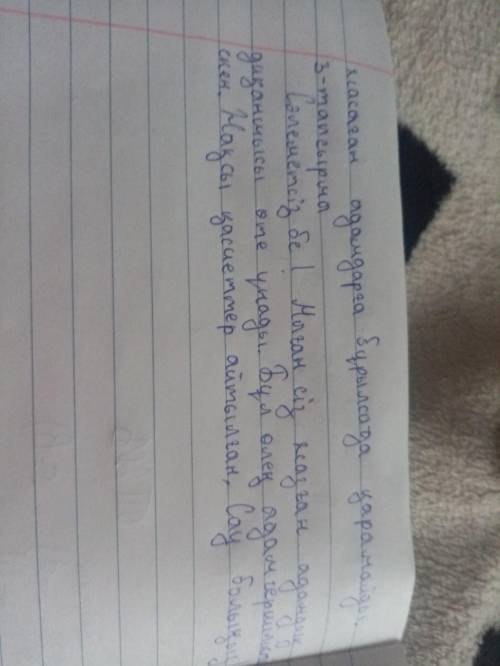 жасаған адамдарға бұрылсаңда қарамайды
3-тапсырма
Сәлеметсіз бе! Маған сіз жазған адамдық
диқаншысы өте ұнады. Бұл өлең адамгершілік
екен. Жақсы қасиеттер айтылған, Сау болыңыз